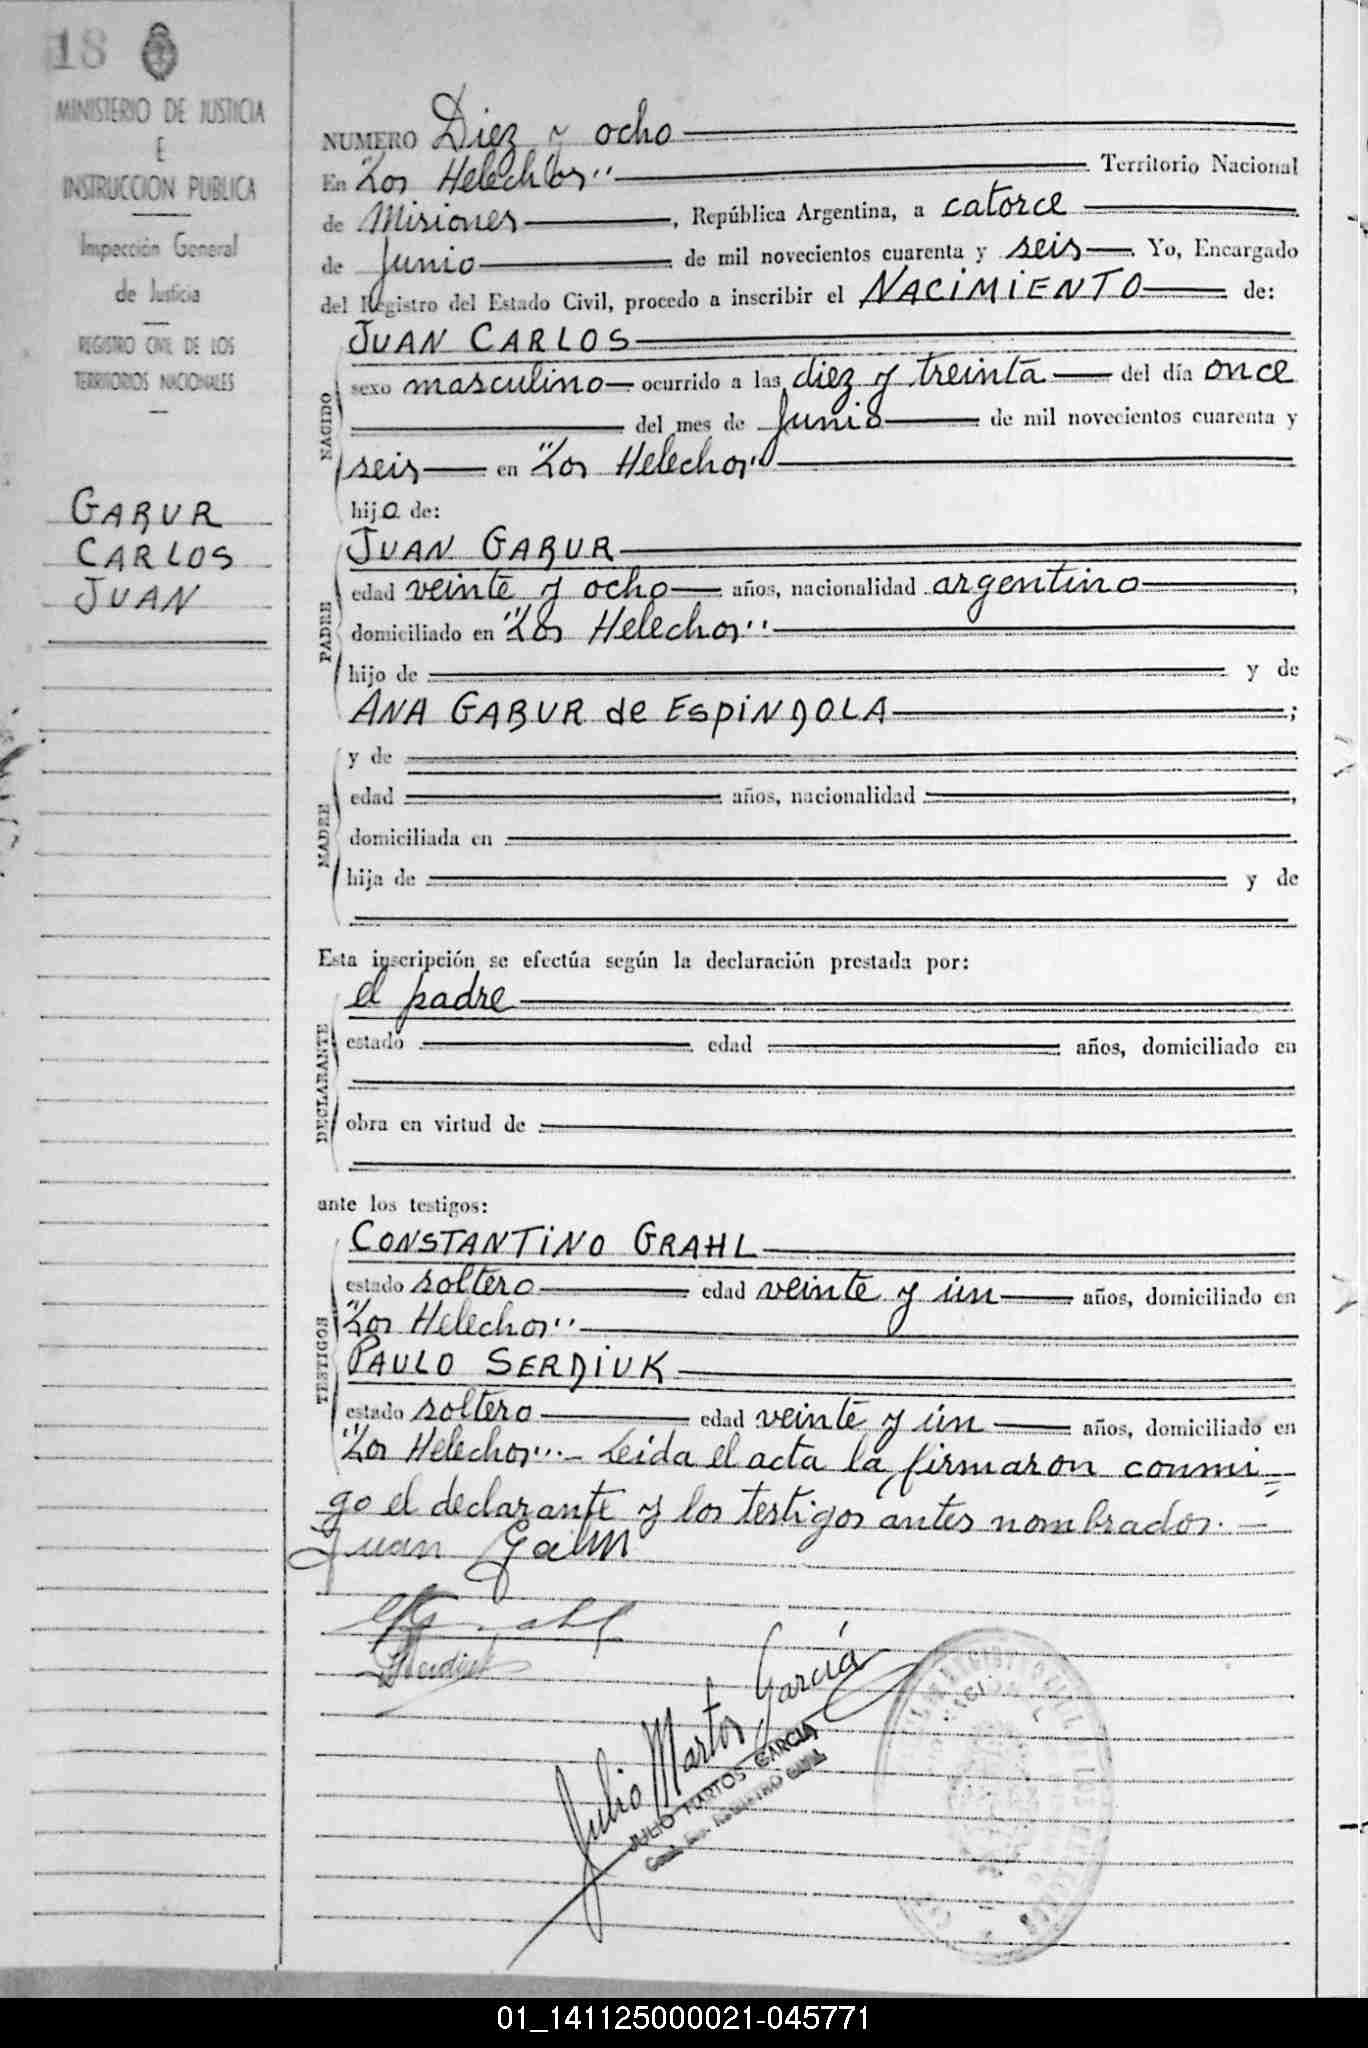 18
MINISTERIO DE JUSTICIA
E
INSTRUCCION PUBLICA
Inspección General
de Justicia
REGISTRO CIVIL DE LOS
TERRITORIOS NACIONALES
GABUR
CARLOS
JUAN
NUMERO Diez y ocho
En "Los Helechos" Territorio Nacional
de Misiones, República Argentina, a catorce
de Junio de mil novecientos cuarenta y seis. Yo, Encargado
del Registro del Estado Civil, procedo a inscribir el NACIMIENTO de:
JUAN CARLOS
NACIDO
sexo masculino ocurrido a las diez y treinta del día once
del mes de Junio de mil novecientos cuarenta y
seis en "Los Helechos"
hijo de:
JUAN GABUR
PADRE
edad veinte y ocho años, nacionalidad argentino,
domiciliado en "Los Helechos"
hijo de y de
ANA GABUR de ESPINDOLA;
MADRE
y de
edad años, nacionalidad,
domiciliada en
hija de y de
Esta inscripción se efectúa según la declaración prestada por:
el padre
DECLARANTE
estado edad años, domiciliado en
obra en virtud de
ante los testigos:
CONSTANTINO GRAHL
TESTIGOS
estado soltero edad veinte y un años, domiciliado en
"Los Helechos"
PAULO SERDIUK
estado soltero edad veinte y un años, domiciliado en
"Los Helechos". - Leida el acta la firmaron conmi=
go el declarante y los testigos antes nombrados. -
Juan Gabur
Julio Martos García
JULIO MARTOS GARCIA
REGISTRO CIVIL
01_141125000021-045771